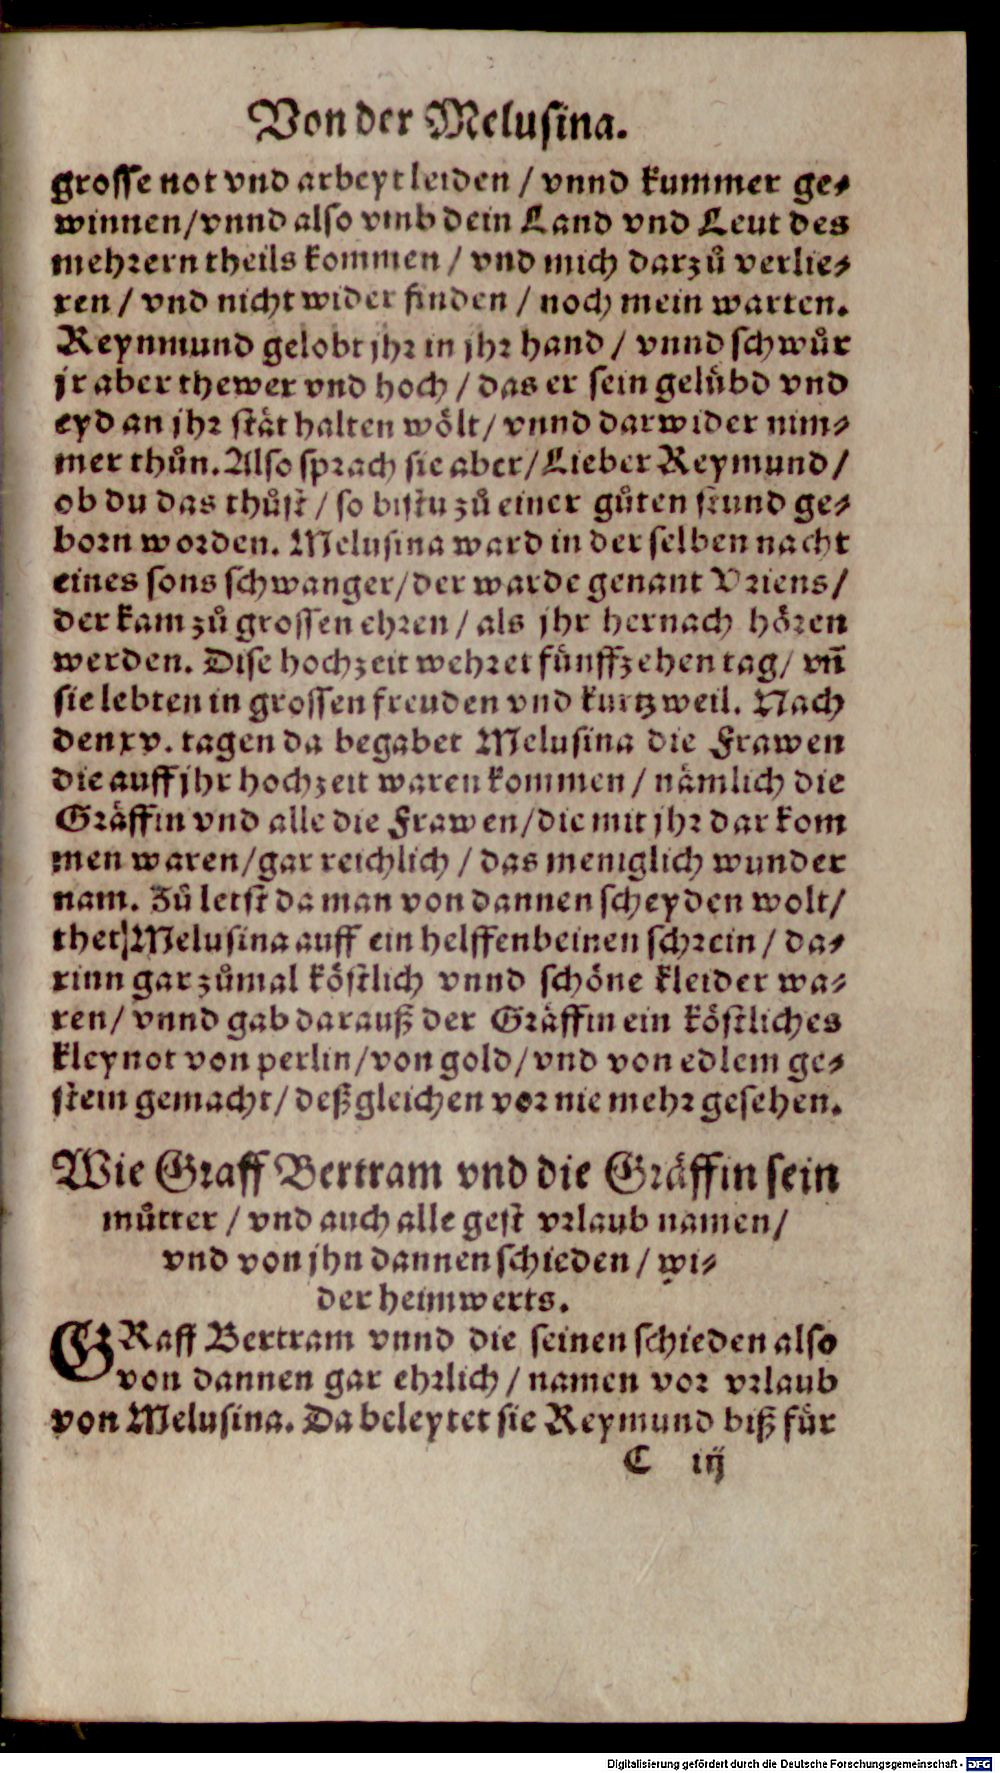 Von der Melusina.
grosse not vnd arbeyt leiden / vnnd kummer ge⸗
winnen/vnnd also vmb dein Land vnd Leut des
mehrern theils kommen / vnd mich darzů verlie⸗
ren / vnd nicht wider finden / noch mein warten.
Reynmund gelobt jhr in jhr hand / vnnd schwůr
jr aber thewer vnd hoch / das er sein gelübd vnd
eyd an jhr stät halten wölt/ vnnd darwider nim⸗
mer thůn. Also sprach sie aber/Lieber Reymund/
ob du das thůst / so bistu zů einer gůten stund ge⸗
born worden. Melusina ward in der selben nacht
eines sons schwanger/der warde genant Vriens/
der kam zů grossen ehren / als jhr hernach hören
werden. Dise hochzeit wehret fünffzehen tag/ vñ
sie lebten in grossen freuden vnd kurtzweil. Nach
den xv. tagen da begabet Melusina die Frawen
die auff jhr hochzeit waren kommen / nämlich die
Gräffin vnd alle die Frawen/die mit jhr dar kom
men waren/gar reichlich / das meniglich wunder
nam. Zů letst da man von dannen scheyden wolt/
thet Melusina auff ein helffenbeinen schrein / da⸗
rinn gar zůmal köstlich vnnd schöne kleider wa⸗
ren/ vnnd gab darauß der Gräffin ein köstliches
kleynot von perlin/von gold/vnd von edlem ge⸗
stein gemacht/ deßgleichen vor nie mehr gesehen.
Wie Graff Bertram vnd die Gräffin sein
můtter / vnd auch alle gest vrlaub namen/
vnd von jhn dannen schieden / wi⸗
der heimwerts.
GRaff Bertram vnnd die seinen schieden also
von dannen gar ehrlich / namen vor vrlaub
von Melusina. Da beleytet sie Reymund biß für
C iij
Digitalisierung gefördert durch die Deutsche Forschungsgemeinschaft - DFG